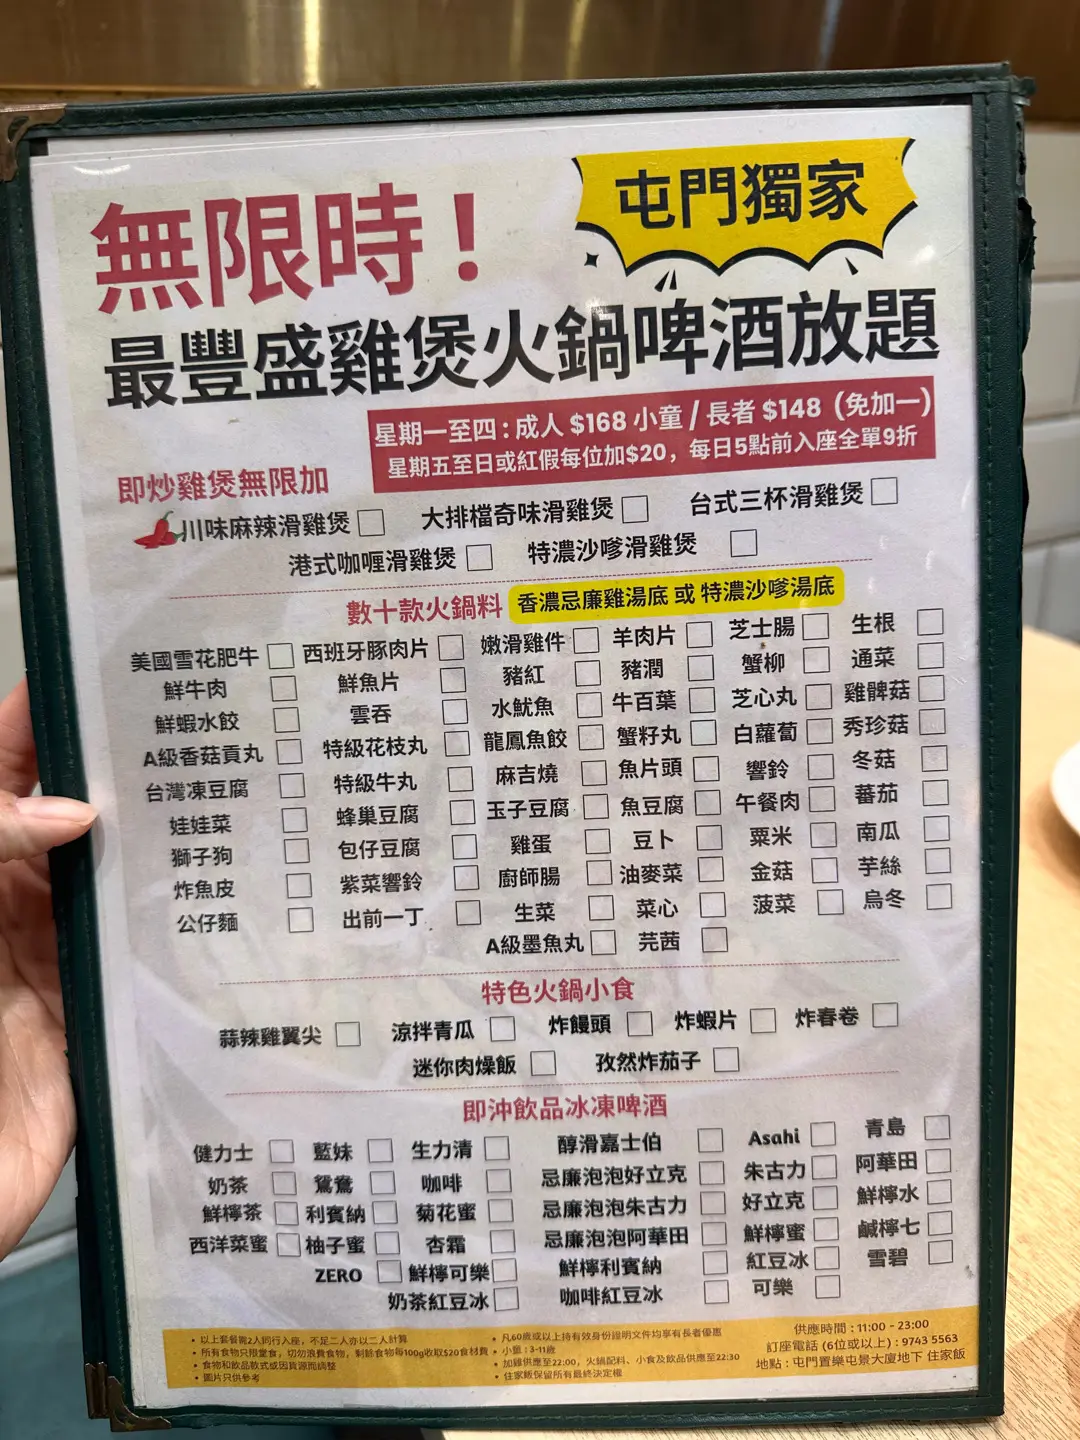 屯門獨家
無限時！
最豐盛雞煲火鍋啤酒放題
星期一至四 : 成人 $168 小童 / 長者 $148 (免加一)
星期五至日或紅假每位加$20，每日5點前入座全單9折
即炒雞煲無限加
川味麻辣滑雞煲 大排檔奇味滑雞煲 台式三杯滑雞煲
港式咖喱滑雞煲 特濃沙嗲滑雞煲
數十款火鍋料 香濃忌廉雞湯底 或 特濃沙嗲湯底
美國雪花肥牛 西班牙豚肉片 嫩滑雞件 羊肉片 芝士腸 生根
鮮牛肉 鮮魚片 豬紅 豬潤 蟹柳 通菜
鮮蝦水餃 雲吞 水魷魚 牛百葉 芝心丸 雞髀菇
A級香菇貢丸 特級花枝丸 龍鳳魚餃 蟹籽丸 白蘿蔔 秀珍菇
台灣凍豆腐 特級牛丸 麻吉燒 魚片頭 響鈴 冬菇
娃娃菜 蜂巢豆腐 玉子豆腐 魚豆腐 午餐肉 蕃茄
獅子狗 包仔豆腐 雞蛋 豆卜 粟米 南瓜
炸魚皮 紫菜響鈴 廚師腸 油麥菜 金菇 芋絲
公仔麵 出前一丁 生菜 菜心 菠菜 烏冬
A級墨魚丸 芫茜
特色火鍋小食
蒜辣雞翼尖 涼拌青瓜 炸饅頭 炸蝦片 炸春卷
迷你肉燥飯 孜然炸茄子
即沖飲品冰凍啤酒
健力士 藍妹 生力清 醇滑嘉士伯 Asahi 青島
奶茶 鴛鴦 咖啡 忌廉泡泡好立克 朱古力 阿華田
鮮檸茶 利賓納 菊花蜜 忌廉泡泡朱古力 好立克 鮮檸水
西洋菜蜜 柚子蜜 杏霜 忌廉泡泡阿華田 鮮檸蜜 鹹檸七
ZERO 鮮檸可樂 鮮檸利賓納 紅豆冰 雪碧
奶茶紅豆冰 咖啡紅豆冰 可樂
• 以上套餐需2人同行入座，不足二人亦以二人計算
• 所有食物只限堂食，切勿浪費食物，剩餘食物每100g收取$20食材費
• 食物和飲品款式或因貨源而調整
• 圖片只供參考
• 凡60歲或以上持有效身份證明文件均享有長者優惠
• 小童 : 3-11歲
• 加雞供應至22:00，火鍋配料、小食及飲品供應至22:30
• 住家飯保留所有最終決定權
供應時間 : 11:00 - 23:00
訂座電話 (6位或以上) : 9743 5563
地點 : 屯門置樂屯景大廈地下 住家飯